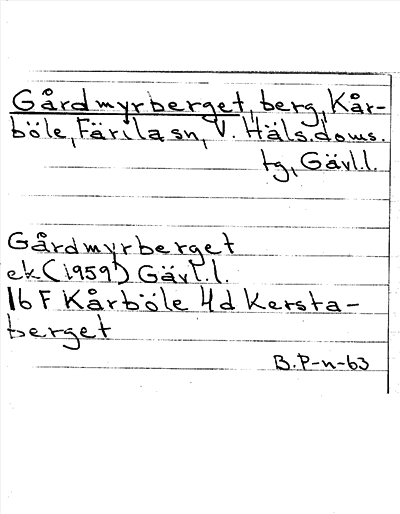 Gårdmyrberget, berg, Kår-
böle, Färila sn, V. Häls. doms.
tg, Gävl.l.
Gårdmyrberget
ek (1959) Gävl.l.
16 F Kårböle 4d Kersta-
berget
B.P-n-63